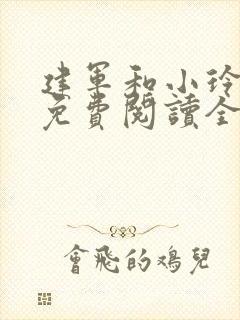 建軍和小玲
免費閱讀全
會飛的鴉兒